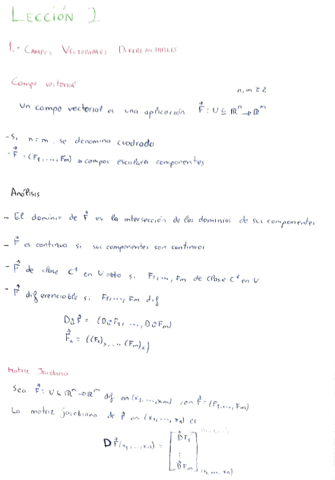 LECCIÓN 1
1.- CAMPOS VECTORIALES DIFERENCIABLES
Campo vectorial
n, m ≥ 2
Un campo vectorial es una aplicación F⃗: U ⊆ ℝⁿ → ℝᵐ
- Si n = m se denomina cuadrado
- F⃗ = (F₁, ..., Fm) → campos escalares componentes
Análisis
- El dominio de F⃗ es la intersección de los dominios de sus componentes
- F⃗ es continuo si sus componentes son continuos
- F⃗ de clase C¹ en U abto si F₁, ..., Fm de clase C¹ en U
- F⃗ diferenciable si F₁, ..., Fm dif
F⃗ = (F₁, ..., Fm)
F⃗ₓ = ((F₁)ₓ, ..., (Fm)ₓ)
Matriz Jacobiana
Sea F⃗: U ⊆ ℝⁿ → ℝᵐ dif en (x₁, ..., xn) con F⃗ = (F₁, ..., Fm)
La matriz jacobiana de F⃗ en (x₁, ..., xn) es
D F⃗(x₁, ..., xn) = [D⃗F₁
⋮
D⃗Fm] (x₁, ..., xn)